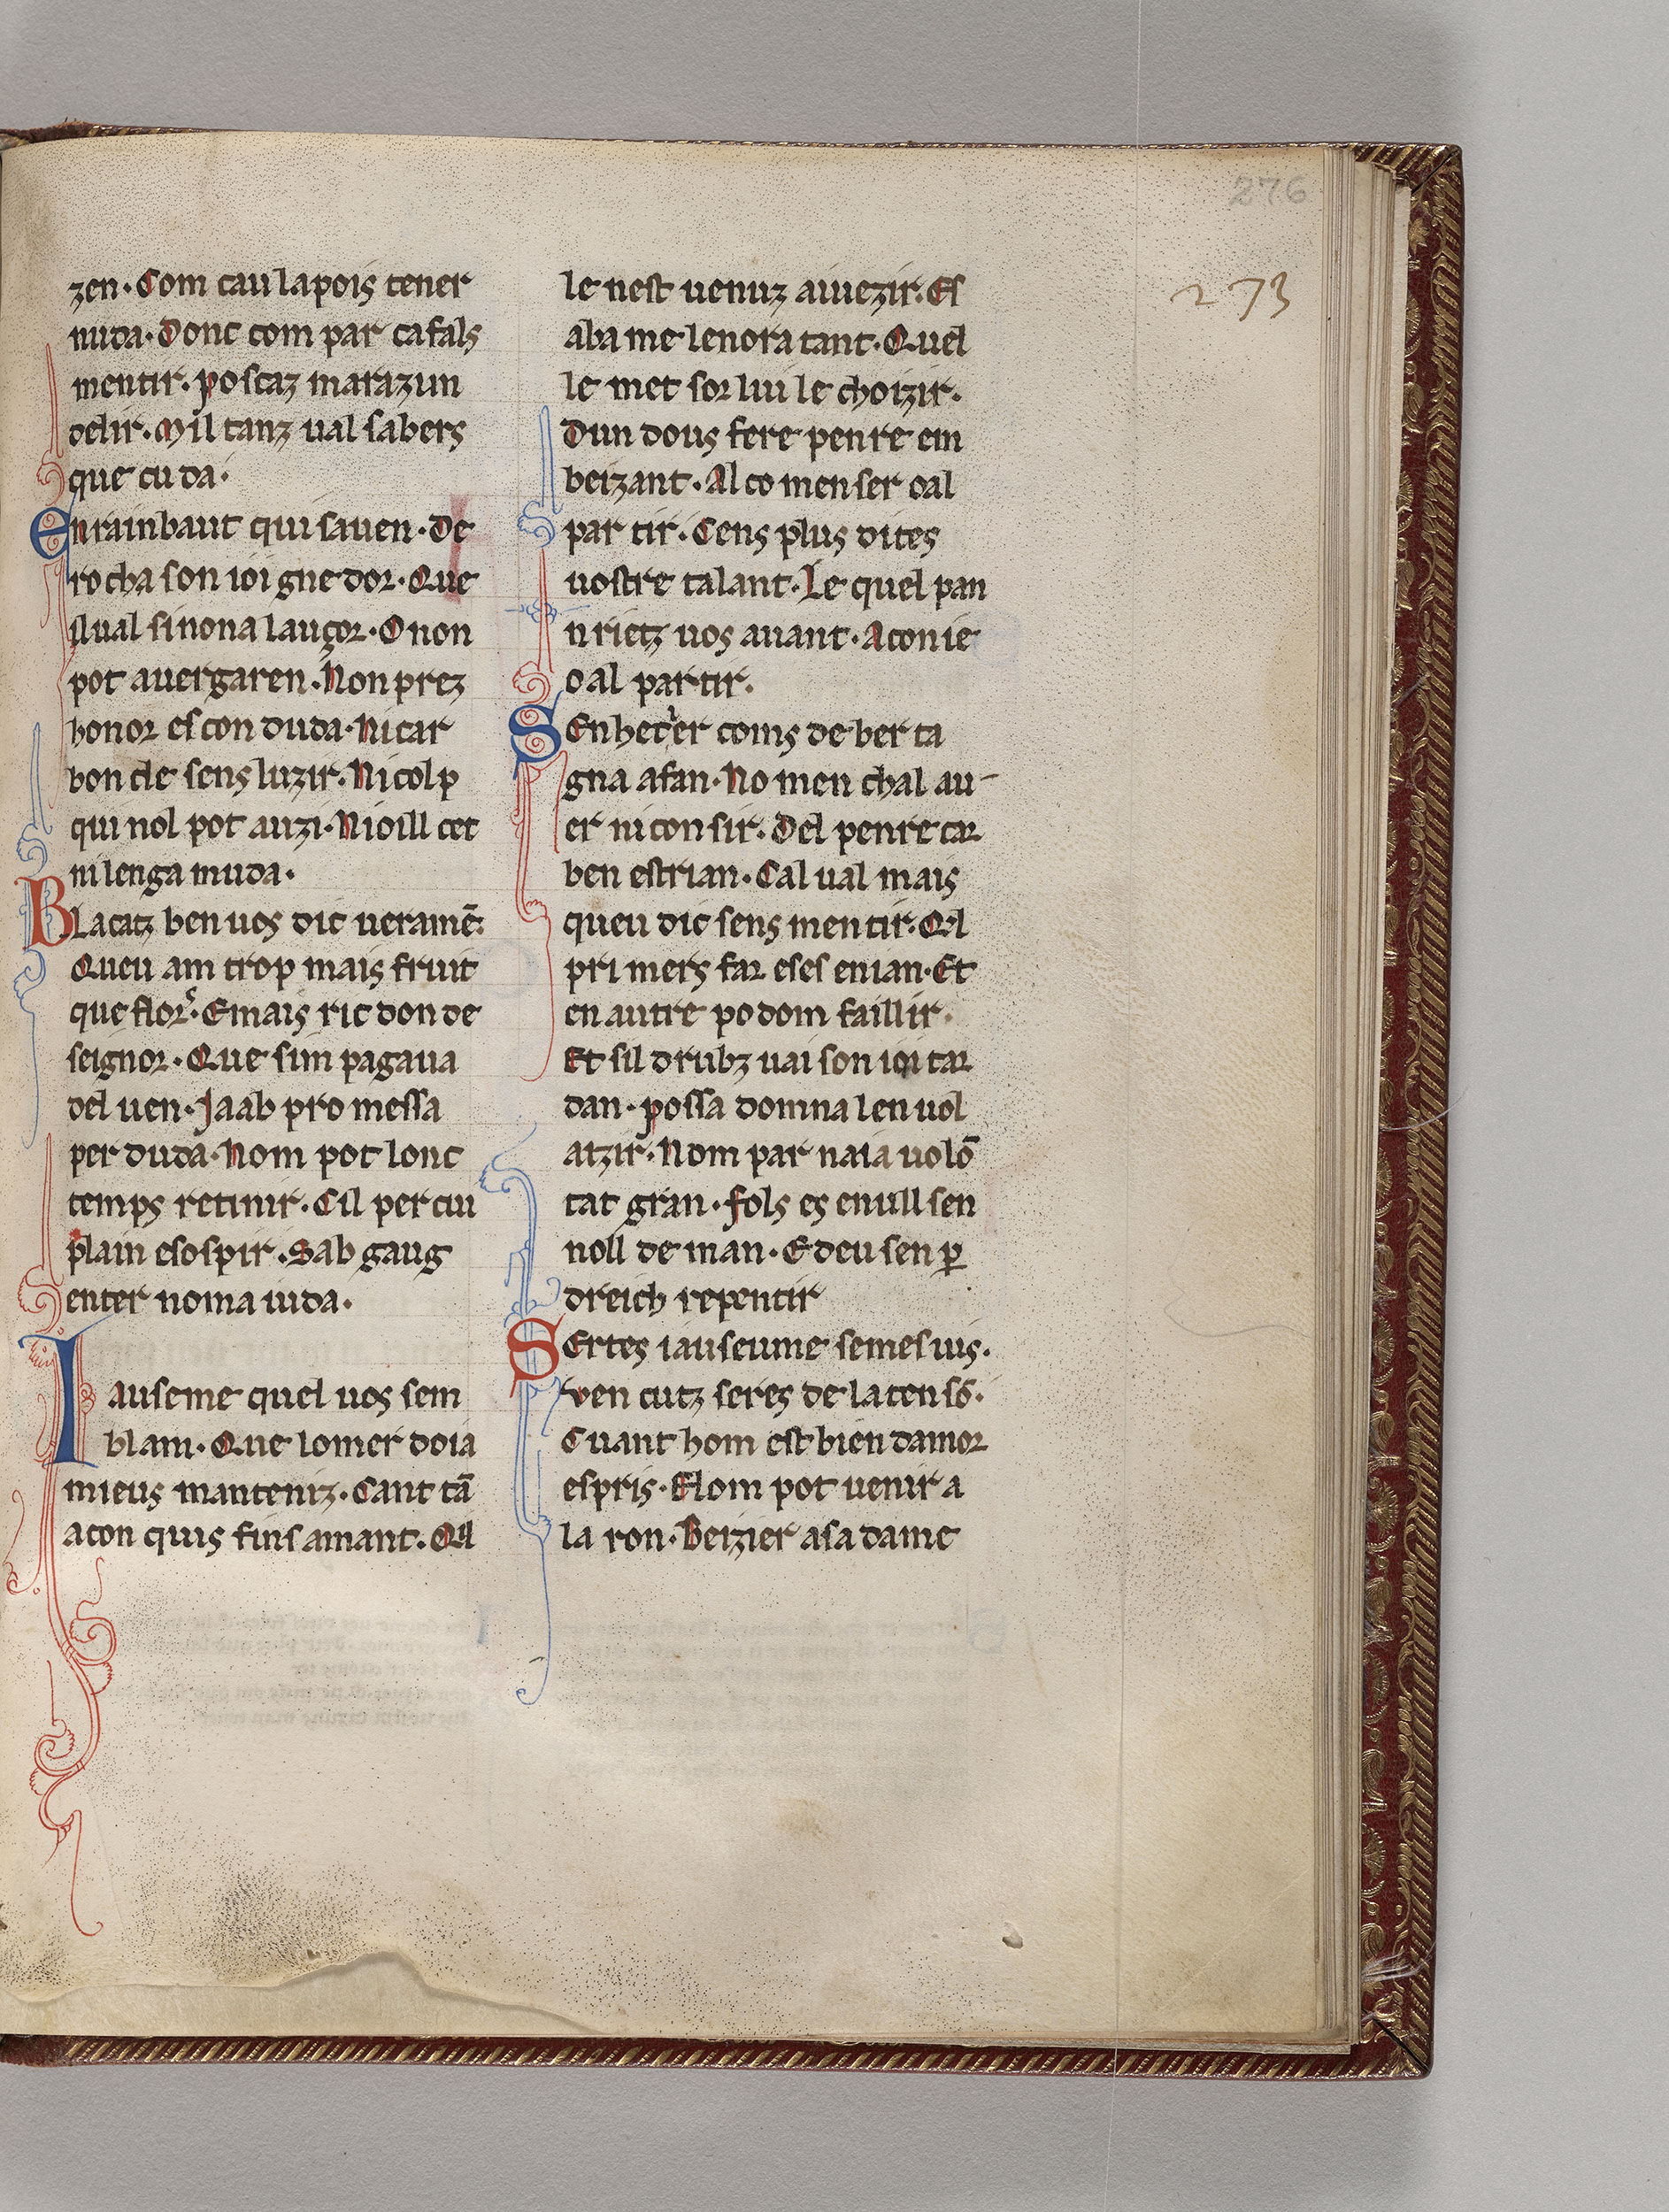 276
273
zen· Com cau la pois tener
nuda· Donc com par ca fals
mentir· poscaz ma razun
odir· Mil tanz ual sabers
que cuda·
Enrainbaut qui sauen· De
rocha son ioi gnedor· Que
il ual si nona lauçor· O non
pot auer garen· Non prez
honor escon duda· Ni car
boncle sens luzir· Ni colp
qui nol pot auzi· Ni oill cet
ni lenga muda·
Blacatz ben uos dic ueramē·
Queu am trop mais fruit
que flors· E mais ric don de
seignor· Que sim pagaua
del uen· Ja ab promessa
perduda· Nom pot lonc
temps retinir· Cil per cui
plain e sospir· Sab gaug
enter no ma iuda·
Iauseme quel uos sem
blam· Que lomer doia
mieus manteniz· Cant tā
a con quis fins amant· Qel
le nest uenuz aiuezir· Es
aba me lenora tant· Quel
le met sor lui le choizir·
Dun dous fere penre em
beizant· Al comenser o al
partir· Cens plus dites
uostre talant· Le quel pan
nrietz uos auant· A conie
o al partir·
SEnheter coms de berta
gna afan· No men chal au-
er ni consir· Del penre car
ben estrian· Cal ual mais
queu dic sens mentir· Qel
primers far es es enian· Et
en autre pod om faillir·
Et sil drubz uai son ioi tar
dan· possa domna len uol
aizir· Nom par naia uolō
tat gran· fols es e null sen
noll deman· E deu sen p̲
dreich repentir
SErtes iauseume se mes uis·
ven cutz seres de la tensō·
Cuant hom est bien damor
espris· E lom pot uenir a
la ron· Beizier a sa dame